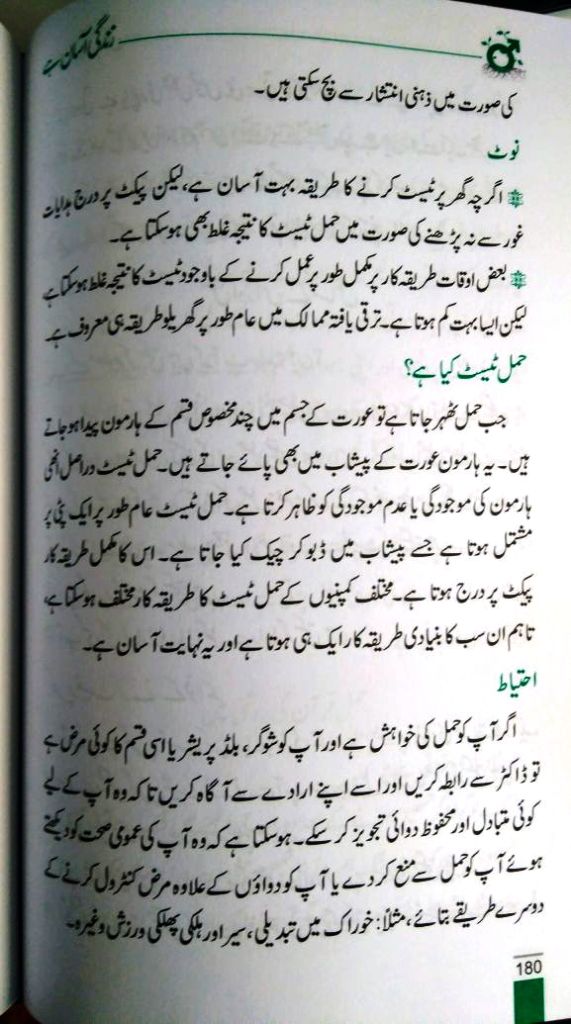 زندگی آسان ہے
کی صورت میں ذہنی انتشار سے بچ سکتی ہیں۔
نوٹ
اگرچہ گھر پر ٹیسٹ کرنے کا طریقہ بہت آسان ہے، لیکن پیکٹ پر درج ہدایات
غور سے نہ پڑھنے کی صورت میں حمل ٹیسٹ کا نتیجہ غلط بھی ہوسکتا ہے۔
بعض اوقات طریقہ کار پر مکمل طور پر عمل کرنے کے باوجود ٹیسٹ کا نتیجہ غلط ہوسکتا ہے
لیکن ایسا بہت کم ہوتا ہے۔ ترقی یافتہ ممالک میں عام طور پر گھریلو طریقہ ہی معروف ہے۔
حمل ٹیسٹ کیا ہے؟
جب حمل ٹھہر جاتا ہے تو عورت کے جسم میں چند مخصوص قسم کے ہارمون پیدا ہوجاتے
ہیں۔ یہ ہارمون عورت کے پیشاب میں بھی پائے جاتے ہیں۔ حمل ٹیسٹ دراصل انھی
ہارمون کی موجودگی یا عدم موجودگی کو ظاہر کرتا ہے۔ حمل ٹیسٹ عام طور پر ایک پٹی پر
مشتمل ہوتا ہے جسے پیشاب میں ڈبو کر چیک کیا جاتا ہے۔ اس کا مکمل طریقہ کار
پیکٹ پر درج ہوتا ہے۔ مختلف کمپنیوں کے حمل ٹیسٹ کا طریقہ کار مختلف ہوسکتا ہے،
تاہم ان سب کا بنیادی طریقہ کار ایک ہی ہوتا ہے اور یہ نہایت آسان ہے۔
احتیاط
اگر آپ کو حمل کی خواہش ہے اور آپ کو شوگر، بلڈ پریشر یا اسی قسم کا کوئی مرض ہے
تو ڈاکٹر سے رابطہ کریں اور اسے اپنے ارادے سے آگاہ کریں تاکہ وہ آپ کے لیے
کوئی متبادل اور محفوظ دوائی تجویز کر سکے۔ ہوسکتا ہے کہ وہ آپ کی عمومی صحت کو دیکھتے
ہوئے آپ کو حمل سے منع کر دے یا آپ کو دواؤں کے علاوہ مرض کنٹرول کرنے کے
دوسرے طریقے بتائے، مثلاً: خوراک میں تبدیلی، سیر اور ہلکی پھلکی ورزش وغیرہ۔
180